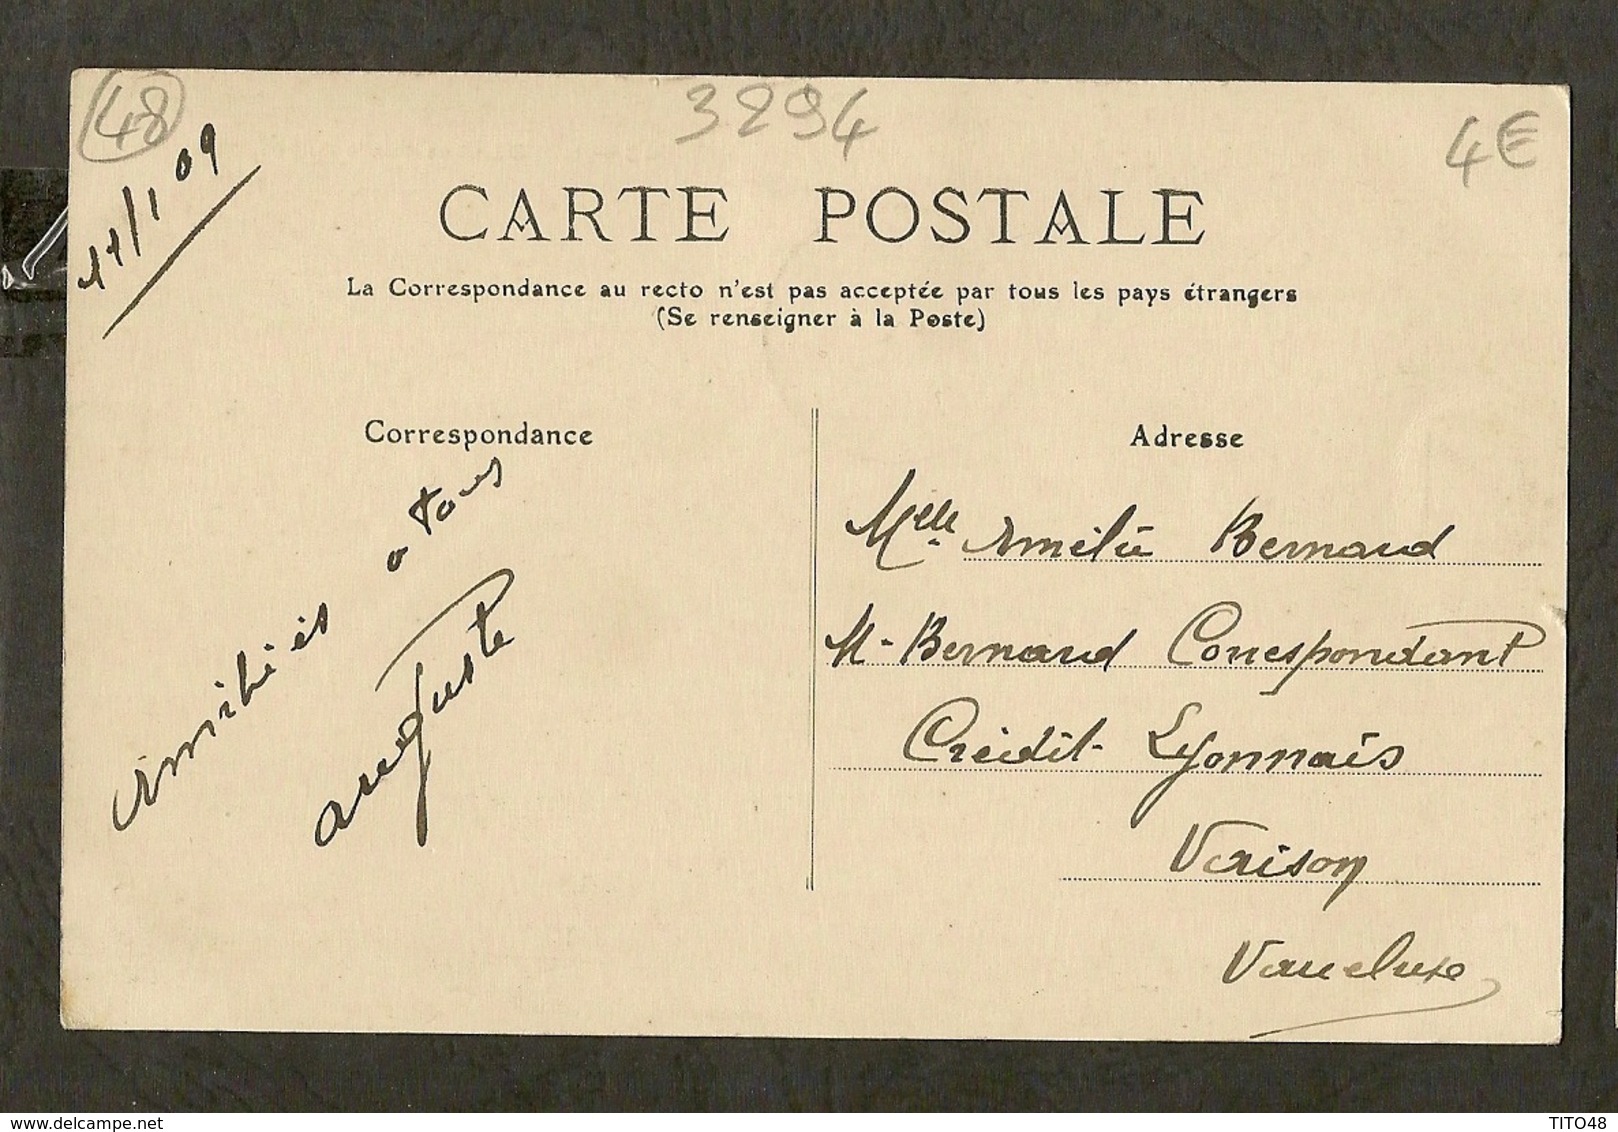 48
3294
4€
11/1 09
CARTE POSTALE
La Correspondance au recto n'est pas acceptée par tous les pays étrangers
(Se renseigner à la Poste)
Correspondance
Amitiés a tous
auguste
Adresse
Melle Amélie Bernard
M. Bernard Correspondant
Crédit Lyonnais
Vaison
Vaucluse
TITO48